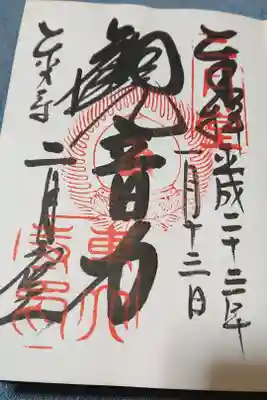 奉拝 平成二十二年
一月十三日
観音力
東大寺 二月堂